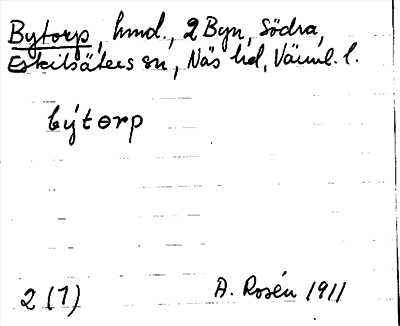 Bytorp, hmd., 2 Byn, Södra,
Eskilsäters sn, Näs hd, Värml. l.
bý̀tɵrp
2 (1) A. Rosén 1911